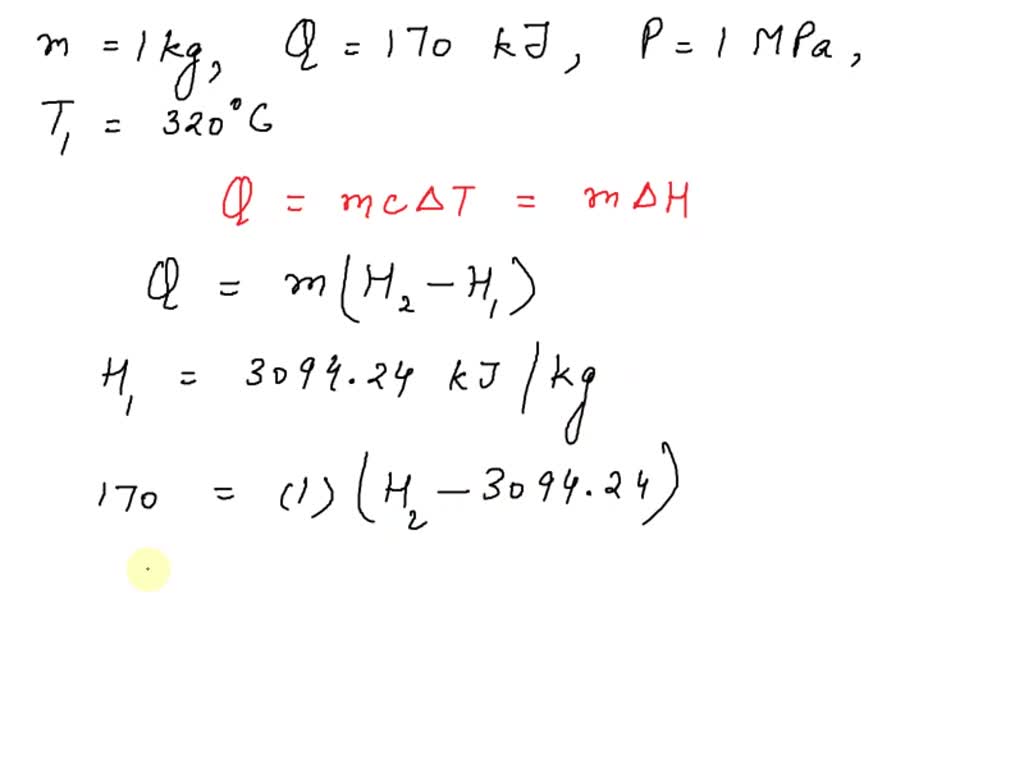 m = 1 kg, Q = 170 kJ, P = 1 MPa,
T₁ = 320°C
Q = mcΔT = mΔH
Q = m(H₂ - H₁)
H₁ = 3094.24 kJ/kg
170 = (1)(H₂ - 3094.24)